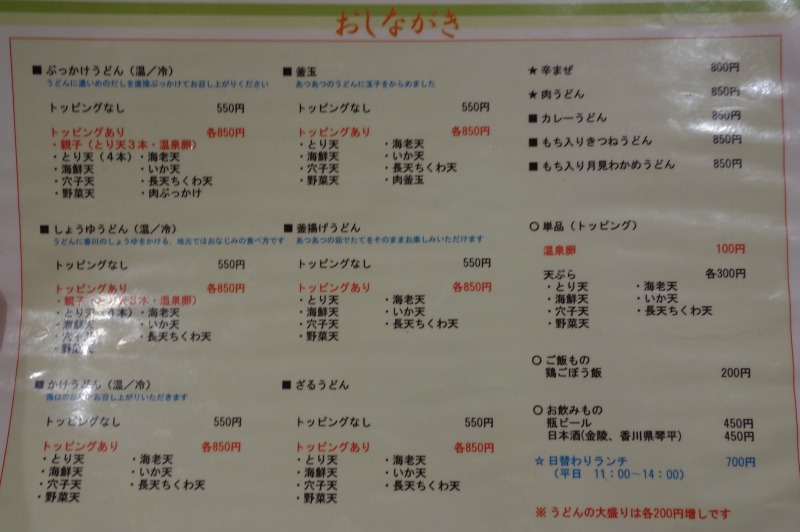 おしながき
■ ぶっかけうどん（温／冷）
うどんに濃いめのだしを直接ぶっかけてお召し上がりください
トッピングなし 550円
トッピングあり 各850円
・親子（とり天３本・温泉卵）
・とり天（４本）・海老天
・海鮮天 ・いか天
・穴子天 ・長天ちくわ天
・野菜天 ・肉ぶっかけ
■ しょうゆうどん（温／冷）
うどんに香川のしょうゆをかける、地元ではおなじみの食べ方です
トッピングなし 550円
トッピングあり 各850円
・親子（とり天３本・温泉卵）
・とり天（４本）・海老天
・海鮮天 ・いか天
・穴子天 ・長天ちくわ天
・野菜天
■ かけうどん（温／冷）
お召し上がりいただきます
トッピングなし 550円
トッピングあり 各850円
・とり天 ・海老天
・海鮮天 ・いか天
・穴子天 ・長天ちくわ天
・野菜天
■ 釜玉
あつあつのうどんに玉子をからめました
トッピングなし 550円
トッピングあり 各850円
・とり天 ・海老天
・海鮮天 ・いか天
・穴子天 ・長天ちくわ天
・野菜天 ・肉釜玉
■ 釜揚げうどん
あつあつの茹でたてをそのままお楽しみいただけます
トッピングなし 550円
トッピングあり 各850円
・とり天 ・海老天
・海鮮天 ・いか天
・穴子天 ・長天ちくわ天
・野菜天
■ ざるうどん
トッピングなし 550円
トッピングあり 各850円
・とり天 ・海老天
・海鮮天 ・いか天
・穴子天 ・長天ちくわ天
・野菜天
★ 辛まぜ 800円
★ 肉うどん 850円
■ カレーうどん 850円
■ もち入りきつねうどん 850円
■ もち入り月見わかめうどん 850円
○ 単品（トッピング）
温泉卵 100円
天ぷら 各300円
・とり天 ・海老天
・海鮮天 ・いか天
・穴子天 ・長天ちくわ天
・野菜天
○ ご飯もの
鶏ごぼう飯 200円
○ お飲みもの
瓶ビール 450円
日本酒(金陵、香川県琴平) 450円
☆ 日替わりランチ 700円
（平日 11：00～14：00）
※ うどんの大盛りは各200円増しです